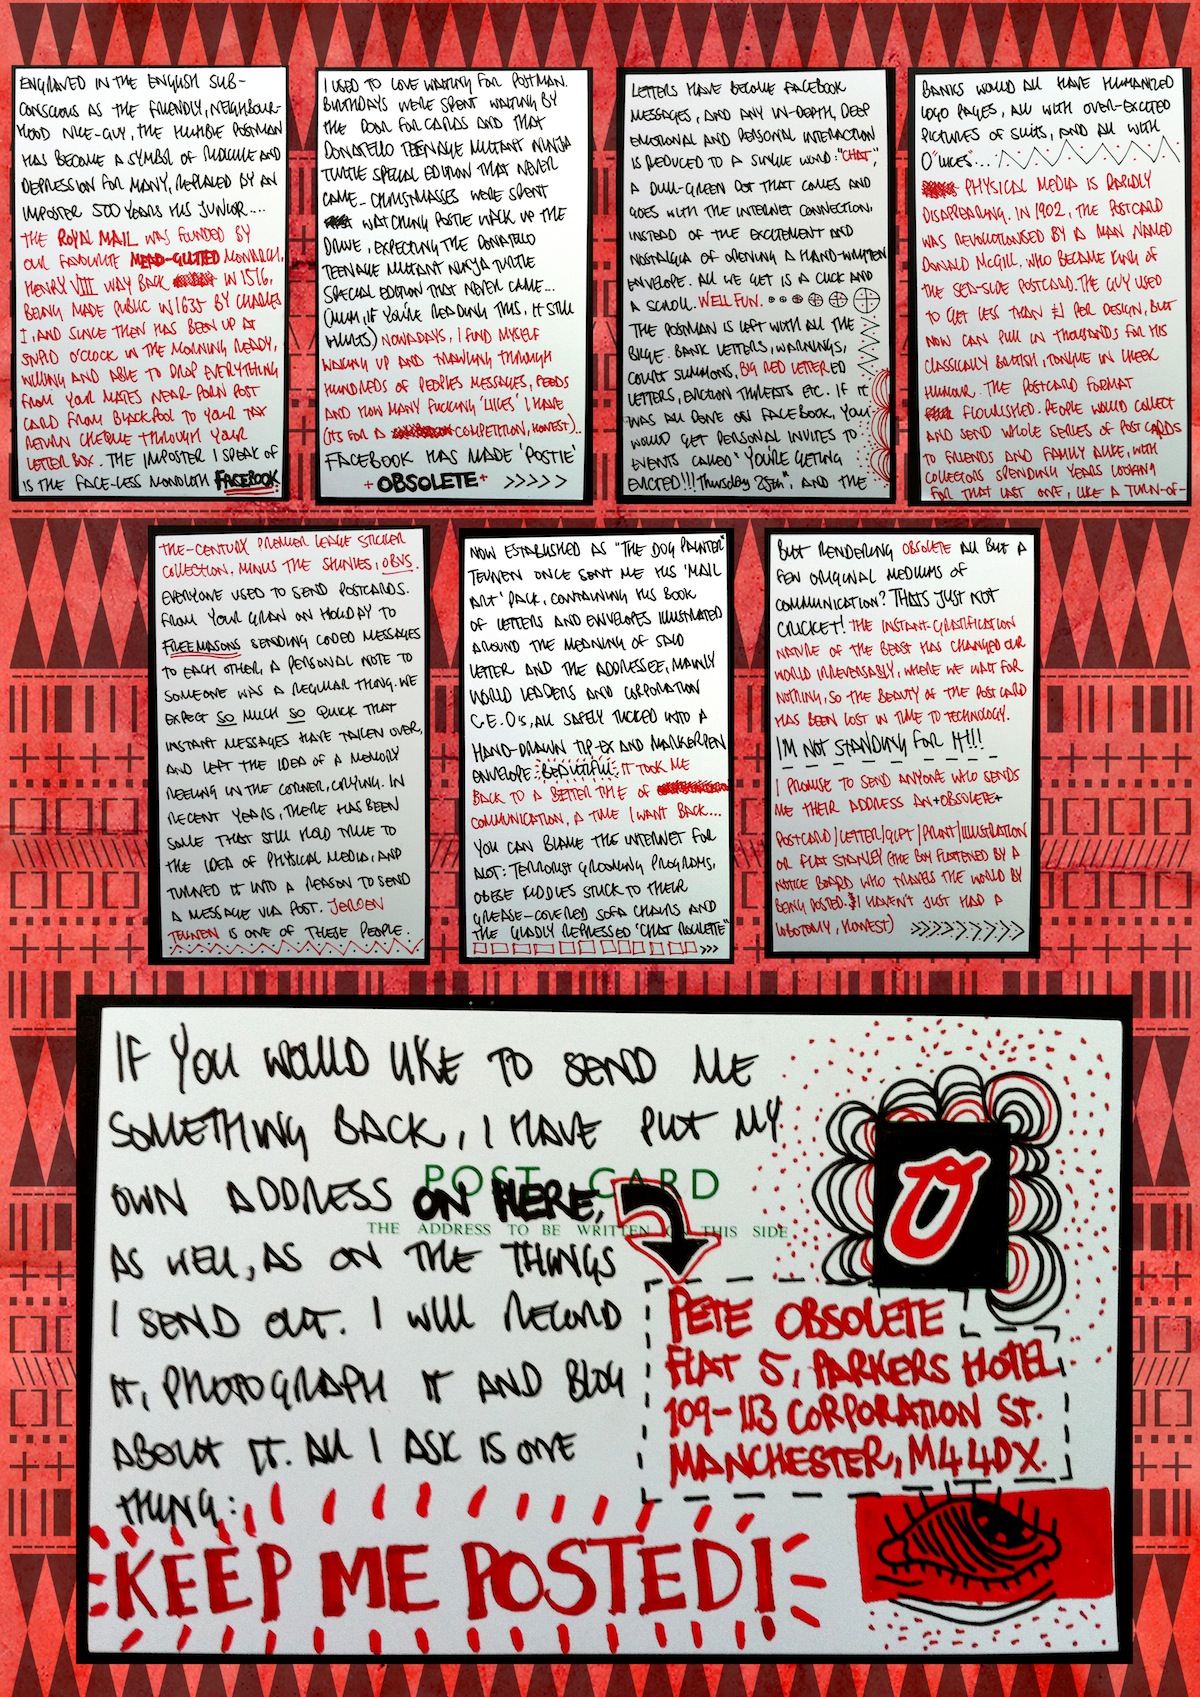 ENGRAVED IN THE ENGLISH SUB-
CONSCIOUS AS THE FRIENDLY, NEIGHBOUR-
HOOD NICE-GUY, THE HUMBLE POSTMAN
HAS BECOME A SYMBOL OF RIDICULE AND
DEPRESSION FOR MANY, REPLACED BY AN
IMPOSTER 500 YEARS HIS JUNIOR....
THE ROYAL MAIL WAS FOUNDED BY
OUR FAVOURITE MONARCH,
HENRY VIII WAY BACK IN 1516,
BEING MADE PUBLIC IN 1635 BY CHARLES
I, AND SINCE THEN HAS BEEN UP AT
STUPID O'CLOCK IN THE MORNING READY,
WILLING AND ABLE TO DROP EVERYTHING
FROM YOUR MATES NEAR-PORN POST
CARD FROM BLACKPOOL TO YOUR TAX
RETURN CHEQUE THROUGH YOUR
LETTER BOX. THE IMPOSTER I SPEAK OF
IS THE FACE-LESS MONOLITH FACEBOOK
I USED TO LOVE WAITING FOR POSTMAN.
BIRTHDAYS WERE SPENT WAITING BY
THE DOOR FOR CARDS AND THAT
DONATELLO TEENAGE MUTANT NINJA
TURTLE SPECIAL EDITION THAT NEVER
CAME... CHRISTMASSES WERE SPENT
WATCHING POSTIE WALK UP THE
DRIVE, EXPECTING THE DONATELLO
TEENAGE MUTANT NINJA TURTLE
SPECIAL EDITION THAT NEVER CAME...
(MUM, IF YOU'RE READING THIS, IT STILL
HURTS) NOWADAYS, I FIND MYSELF
WAKING UP AND TRAWLING THROUGH
HUNDREDS OF PEOPLES MESSAGES, FEEDS
AND HOW MANY FUCKING 'LIKES' I HAVE
(ITS FOR A COMPETITION, HONEST)..
FACEBOOK HAS MADE 'POSTIE'
+ OBSOLETE + >>>>>
LETTERS HAVE BECOME FACEBOOK
MESSAGES, AND ANY IN-DEPTH, DEEP
EMOTIONAL AND PERSONAL INTERACTION
IS REDUCED TO A SINGLE WORD: "CHAT",
A DULL-GREEN DOT THAT COMES AND
GOES WITH THE INTERNET CONNECTION.
INSTEAD OF THE EXCITEMENT AND
NOSTALGIA OF OPENING A HAND-WRITTEN
ENVELOPE. ALL WE GET IS A CLICK AND
A SCROLL. WELL FUN.
THE POSTMAN IS LEFT WITH ALL THE
BILGE. BANK LETTERS, WARNINGS,
COURT SUMMONS, BIG RED LETTERED
LETTERS, EVICTION THREATS ETC. IF IT
WAS ALL DONE ON FACEBOOK, YOU
WOULD GET PERSONAL INVITES TO
EVENTS CALLED "YOU'RE GETING
EVICTED!!! Thursday 25th", AND THE
BANKS WOULD ALL HAVE HUMANIZED
LOGO PAGES, ALL WITH OVER-EXCITED
PICTURES OF SUITS, AND ALL WITH
O "LIKES"...
PHYSICAL MEDIA IS RAPIDLY
DISAPPEARING. IN 1902, THE POSTCARD
WAS REVOLUTIONISED BY A MAN NAMED
DONALD McGILL, WHO BECAME KING OF
THE SEA-SIDE POSTCARD. THE GUY USED
TO GET LESS THAN £1 PER DESIGN, BUT
NOW CAN PULL IN THOUSANDS FOR HIS
CLASSICALLY BRITISH, TONGUE IN CHEEK
HUMOUR. THE POSTCARD FORMAT
FLOURISHED. PEOPLE WOULD COLLECT
AND SEND WHOLE SERIES OF POST CARDS
TO FRIENDS AND FAMILY ALIKE, WITH
COLLECTORS SPENDING YEARS LOOKING
FOR THAT LAST ONE, LIKE A TURN-OF-
THE-CENTURY PREMIER LEAGE STICKER
COLLECTION, MINUS THE SHINIES, OBVS.
EVERYONE USED TO SEND POSTCARDS.
FROM YOUR GRAN ON HOLIDAY TO
FREEMASONS SENDING CODED MESSAGES
TO EACH OTHER, A PERSONAL NOTE TO
SOMEONE WAS A REGULAR THING. WE
EXPECT SO MUCH SO QUICK THAT
INSTANT MESSAGES HAVE TAKEN OVER,
AND LEFT THE IDEA OF A MEMORY
REELING IN THE CORNER, CRYING. IN
RECENT YEARS, THERE HAS BEEN
SOME THAT STILL HOLD TRUE TO
THE IDEA OF PHYSICAL MEDIA, AND
TURNED IT INTO A REASON TO SEND
A MESSAGE VIA POST. JEROEN
TEUNEN IS ONE OF THESE PEOPLE.
NOW ESTABLISHED AS "THE DOG PAINTER"
TEUNEN ONCE SENT ME HIS 'MAIL
ART' PACK, CONTAINING HIS BOOK
OF LETTERS AND ENVELOPES ILLUSTRATED
AROUND THE MEANING OF SAID
LETTER AND THE ADDRESSEE, MAINLY
WORLD LEADERS AND CORPORATION
C.E.O's, ALL SAFELY TUCKED INTO A
HAND-DRAWN TIP-EX AND MARKERPEN
ENVELOPE. BEAUTIFUL. IT TOOK ME
BACK TO A BETTER TIME OF
COMMUNICATION, A TIME I WANT BACK...
YOU CAN BLAME THE INTERNET FOR
ALOT: TERRORIST GROOMING PROGRAMS,
OBESE KIDDIES STUCK TO THEIR
GREASE-COVERED SOFA CHAIRS AND
THE GLADLY REPRESSED 'CHAT ROULETE'
>>>
BUT RENDERING OBSOLETE ALL BUT A
FEW ORIGINAL MEDIUMS OF
COMMUNICATION? THATS JUST NOT
CRICKET! THE INSTANT-GRATIFICATION
NATURE OF THE BEAST HAS CHANGED OUR
WORLD IRREVERSABLY, WHERE WE WAIT FOR
NOTHING, SO THE BEAUTY OF THE POSTCARD
HAS BEEN LOST IN TIME TO TECHNOLOGY.
I'M NOT STANDING FOR IT!!!
I PROMISE TO SEND ANYONE WHO SENDS
ME THEIR ADDRESS AN +OBSOLETE+
POSTCARD/LETTER/GIFT/PRINT/ILLUSTRATION
OR FLAT STANLEY (THE BOY FLATTENED BY A
NOTICE BOARD WHO TRAVELS THE WORLD BY
BEING POSTED. I HAVEN'T JUST HAD A
LOBOTOMY, HONEST) >>>>>>>>>
IF YOU WOULD LIKE TO SEND ME
SOMETHING BACK, I HAVE PUT MY
OWN ADDRESS ON HERE,
POST CARD
THE ADDRESS TO BE WRITTEN ON THIS SIDE
AS WELL, AS ON THE THINGS
I SEND OUT. I WILL RECORD
IT, PHOTOGRAPH IT AND BLOG
ABOUT IT. ALL I ASK IS ONE
THING:
KEEP ME POSTED!
O
PETE OBSOLETE
FLAT 5, PARKERS HOTEL
109-113 CORPORATION ST.
MANCHESTER, M4 4DX.